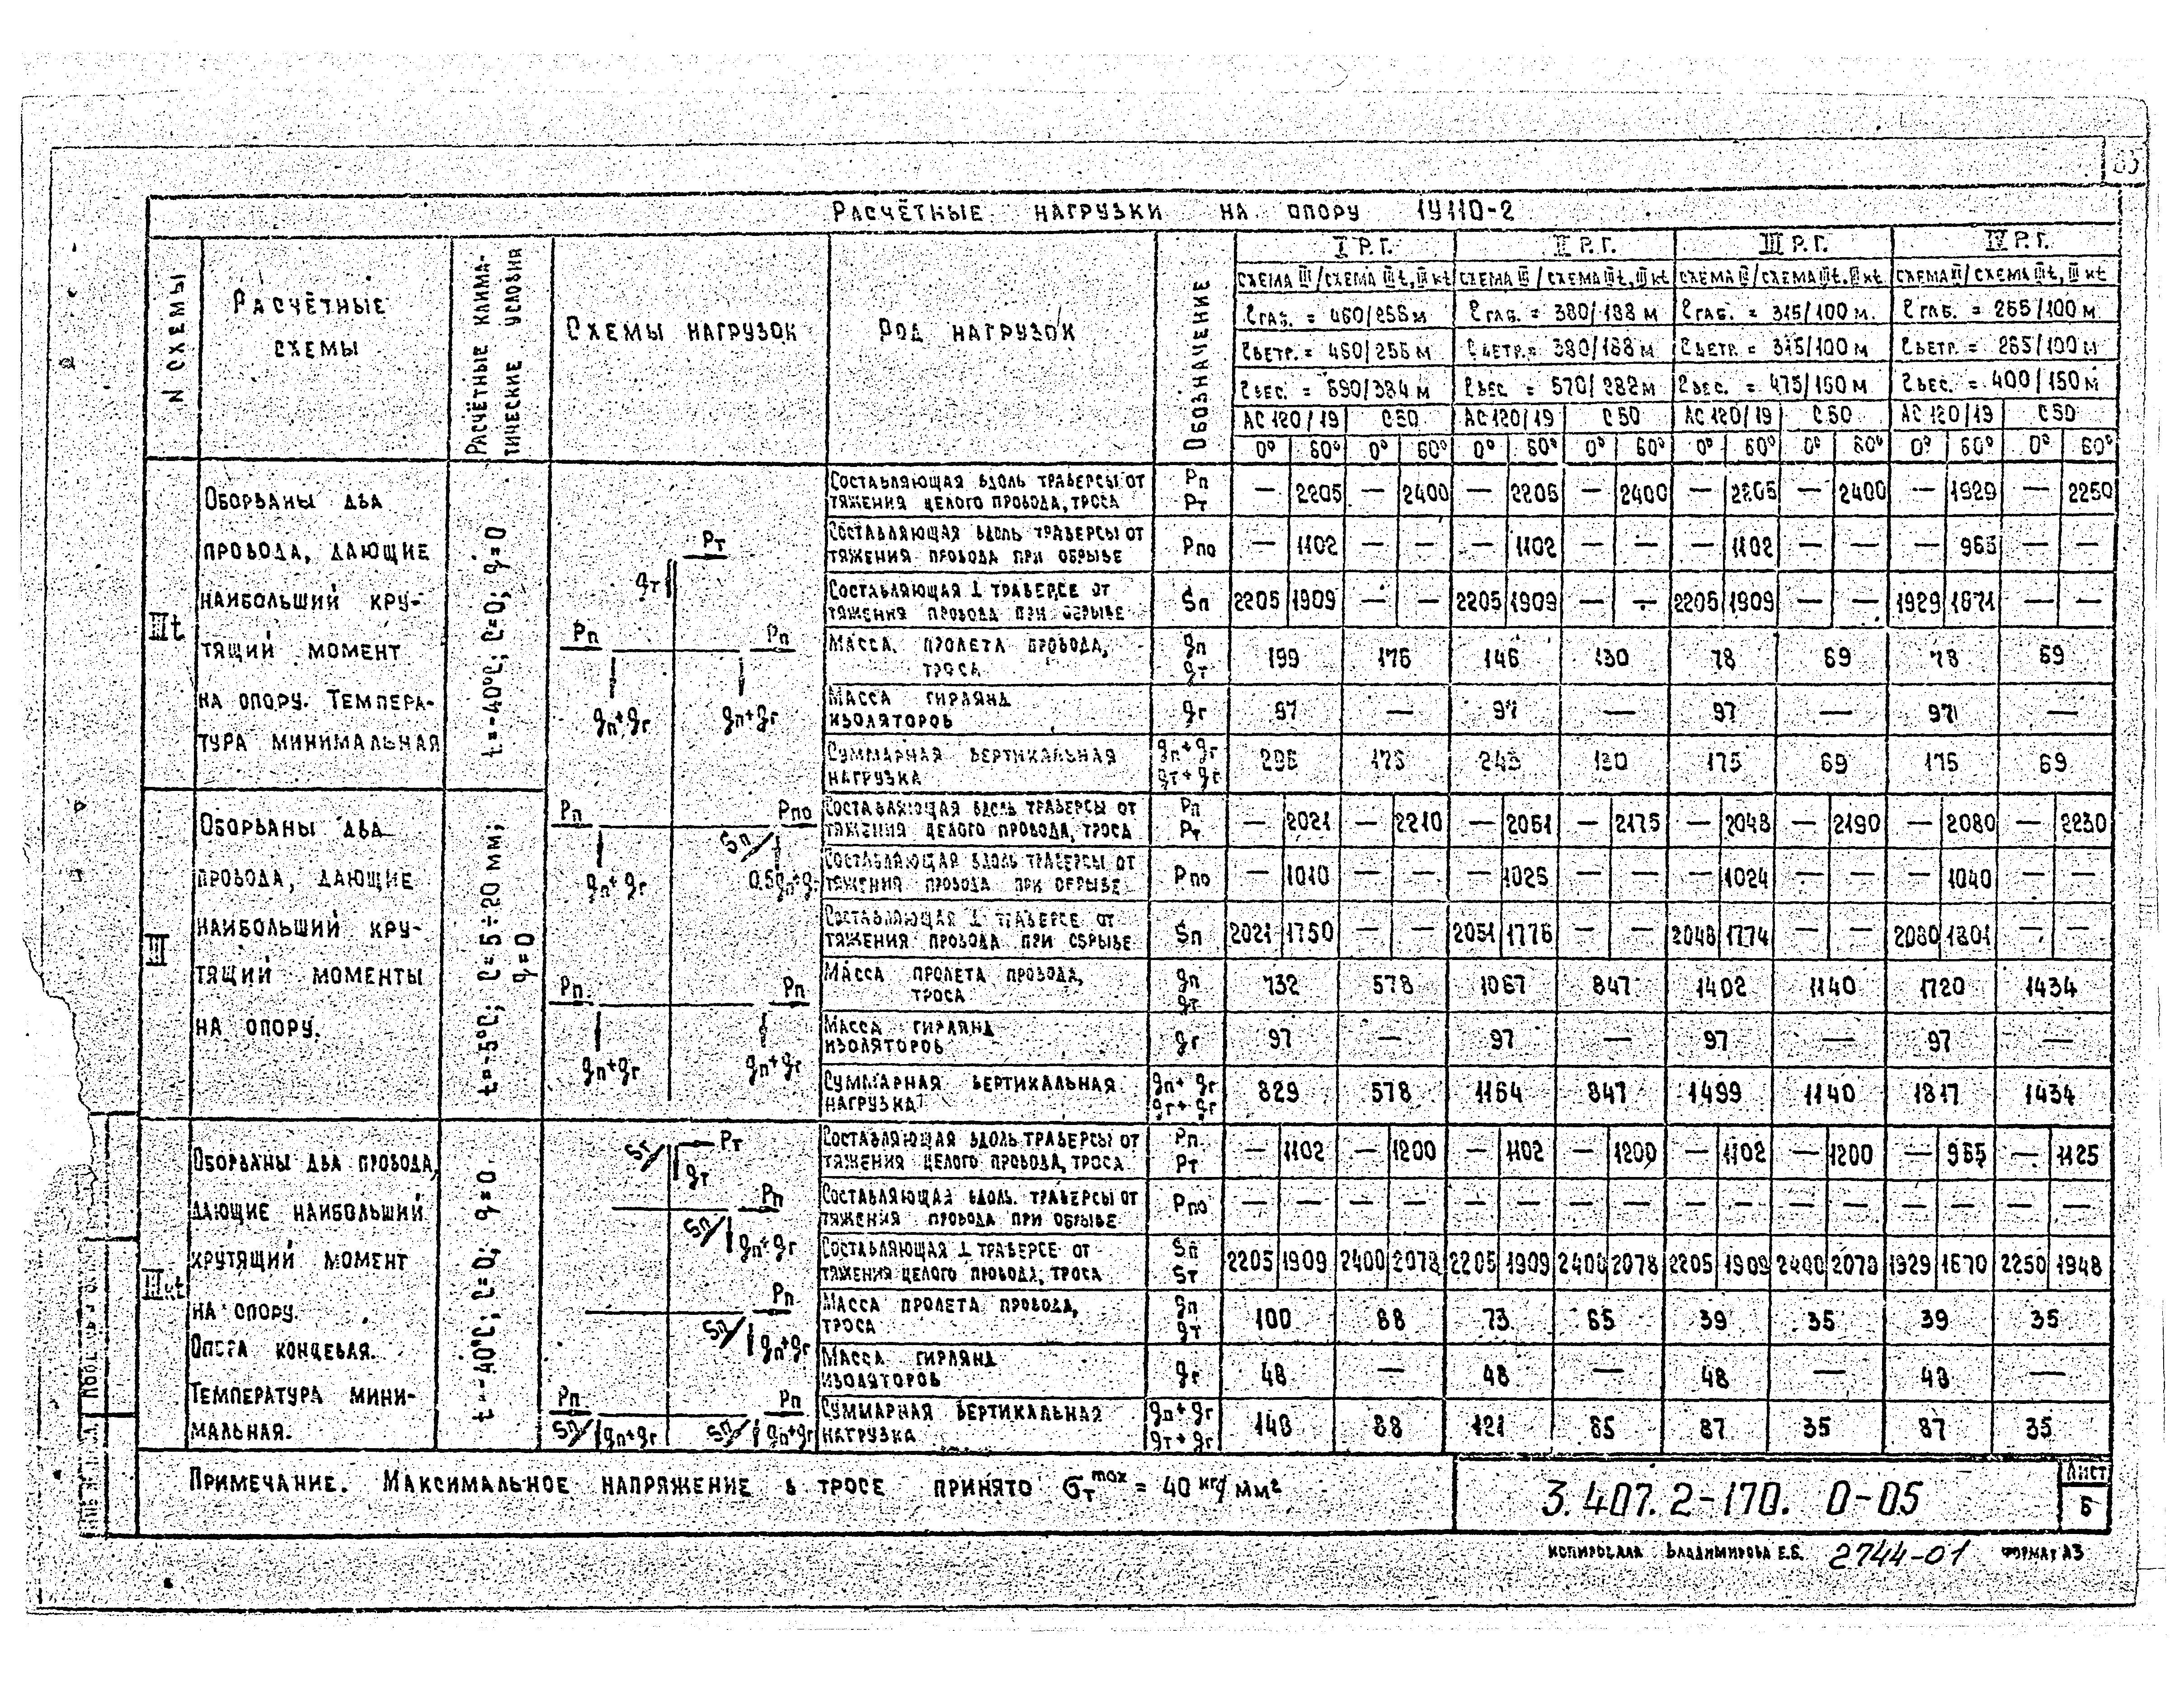 РАСЧЁТНЫЕ НАГРУЗКИ НА ОПОРУ 1У110-2
N СХЕМЫ
РАСЧЁТНЫЕ
СХЕМЫ
РАСЧЁТНЫЕ КЛИМА-
ТИЧЕСКИЕ УСЛОВИЯ
СХЕМЫ НАГРУЗОК
РОД НАГРУЗОК
ОБОЗНАЧЕНИЕ
I Р.Г. II Р.Г. III Р.Г. IV Р.Г.
СХЕМА III/СХЕМА IIIt, IIIкt СХЕМА III/СХЕМА IIIt, IIIкt СХЕМА III/СХЕМА IIIt, IIIкt СХЕМА III/СХЕМА IIIt, IIIкt
ℓГАБ. = 460/256 М ℓГАБ. = 380/188 М ℓГАБ. = 315/100 М ℓГАБ. = 265/100 М
ℓВЕТР. = 460/256 М ℓВЕТР. = 380/188 М ℓВЕТР. = 315/100 М ℓВЕТР. = 265/100 М
ℓВЕС. = 690/384 М ℓВЕС. = 570/282 М ℓВЕС. = 475/150 М ℓВЕС. = 400/150 М
АС 120/19 С50 АС 120/19 С50 АС 120/19 С50 АС 120/19 С50
0° 60° 0° 60° 0° 60° 0° 60° 0° 60° 0° 60° 0° 60° 0° 60°
IIIt
ОБОРВАНЫ ДВА
ПРОВОДА, ДАЮЩИЕ
НАИБОЛЬШИЙ КРУ-
ТЯЩИЙ МОМЕНТ
НА ОПОРУ. ТЕМПЕРА-
ТУРА МИНИМАЛЬНАЯ
t=-40°С; C=0; q=0
Pт
gт
Pп Pп
gп+gг gп+gг
СОСТАВЛЯЮЩАЯ ВДОЛЬ ТРАВЕРСЫ ОТ
ТЯЖЕНИЯ ЦЕЛОГО ПРОВОДА, ТРОСА
Pп
Pт
— 2205 — 2400 — 2205 — 2400 — 2205 — 2400 — 1929 — 2250
СОСТАВЛЯЮЩАЯ ВДОЛЬ ТРАВЕРСЫ ОТ
ТЯЖЕНИЯ ПРОВОДА ПРИ ОБРЫВЕ
Pпо
— 1102 — — — 1102 — — — 1102 — — — 965 — —
СОСТАВЛЯЮЩАЯ ⊥ ТРАВЕРСЕ ОТ
ТЯЖЕНИЯ ПРОВОДА ПРИ ОБРЫВЕ
Sп
2205 1909 — — 2205 1909 — — 2205 1909 — — 1929 1671 — —
МАССА ПРОЛЕТА ПРОВОДА,
ТРОСА
gп
gт
199 176 146 130 78 69 78 69
МАССА ГИРЛЯНД
ИЗОЛЯТОРОВ
gг
97 — 97 — 97 — 97 —
СУММАРНАЯ ВЕРТИКАЛЬНАЯ
НАГРУЗКА
gп+gг
gт+gг
296 176 243 130 175 69 175 69
III
ОБОРВАНЫ ДВА
ПРОВОДА, ДАЮЩИЕ
НАИБОЛЬШИЙ КРУ-
ТЯЩИЙ МОМЕНТЫ
НА ОПОРУ.
t=-5°С; C=5÷20 мм;
q=0
Pп Pпо
Sп
gп+gг 0.5gп+gг
Pп Pп
gп+gг gп+gг
СОСТАВЛЯЮЩАЯ ВДОЛЬ ТРАВЕРСЫ ОТ
ТЯЖЕНИЯ ЦЕЛОГО ПРОВОДА, ТРОСА
Pп
Pт
— 2021 — 2210 — 2051 — 2175 — 2048 — 2190 — 2080 — 2230
СОСТАВЛЯЮЩАЯ ВДОЛЬ ТРАВЕРСЫ ОТ
ТЯЖЕНИЯ ПРОВОДА ПРИ ОБРЫВЕ
Pпо
— 1010 — — — 1025 — — — 1024 — — — 1040 — —
СОСТАВЛЯЮЩАЯ ⊥ ТРАВЕРСЕ ОТ
ТЯЖЕНИЯ ПРОВОДА ПРИ ОБРЫВЕ
Sп
2021 1750 — — 2051 1776 — — 2048 1774 — — 2080 1801 — —
МАССА ПРОЛЕТА ПРОВОДА,
ТРОСА
gп
gт
732 578 1067 847 1402 1140 1720 1434
МАССА ГИРЛЯНД
ИЗОЛЯТОРОВ
gг
97 — 97 — 97 — 97 —
СУММАРНАЯ ВЕРТИКАЛЬНАЯ
НАГРУЗКА
gп+gг
gт+gг
829 578 1164 847 1499 1140 1817 1434
IIIкt
ОБОРВАНЫ ДВА ПРОВОДА,
ДАЮЩИЕ НАИБОЛЬШИЙ
КРУТЯЩИЙ МОМЕНТ
НА ОПОРУ.
ОПОРА КОНЦЕВАЯ.
ТЕМПЕРАТУРА МИНИ-
МАЛЬНАЯ.
t=-40°С; C=0; q=0
Sт Pт
gт
Pп
Sп gп+gг
Pп
Sп gп+gг
Pп Pп
Sп gп+gг Sп gп+gг
СОСТАВЛЯЮЩАЯ ВДОЛЬ ТРАВЕРСЫ ОТ
ТЯЖЕНИЯ ЦЕЛОГО ПРОВОДА, ТРОСА
Pп
Pт
— 1102 — 1200 — 1102 — 1200 — 1102 — 1200 — 965 — 1125
СОСТАВЛЯЮЩАЯ ВДОЛЬ ТРАВЕРСЫ ОТ
ТЯЖЕНИЯ ПРОВОДА ПРИ ОБРЫВЕ
Pпо
— — — — — — — — — — — — — — — —
СОСТАВЛЯЮЩАЯ ⊥ ТРАВЕРСЕ ОТ
ТЯЖЕНИЯ ЦЕЛОГО ПРОВОДА, ТРОСА
Sп
Sт
2205 1909 2400 2078 2205 1909 2400 2078 2205 1909 2400 2078 1929 1670 2250 1948
МАССА ПРОЛЕТА ПРОВОДА,
ТРОСА
gп
gт
100 88 73 65 39 35 39 35
МАССА ГИРЛЯНД
ИЗОЛЯТОРОВ
gг
48 — 48 — 48 — 48 —
СУММАРНАЯ ВЕРТИКАЛЬНАЯ
НАГРУЗКА
gп+gг
gт+gг
148 88 121 65 87 35 87 35
ПРИМЕЧАНИЕ. МАКСИМАЛЬНОЕ НАПРЯЖЕНИЕ В ТРОСЕ ПРИНЯТО Gт max = 40 кг/мм²
3.407.2-170. 0-05
ЛИСТ
КОПИРОВАЛА ВЛАДИМИРОВА Е.Б. 2744-01 ФОРМАТ А3